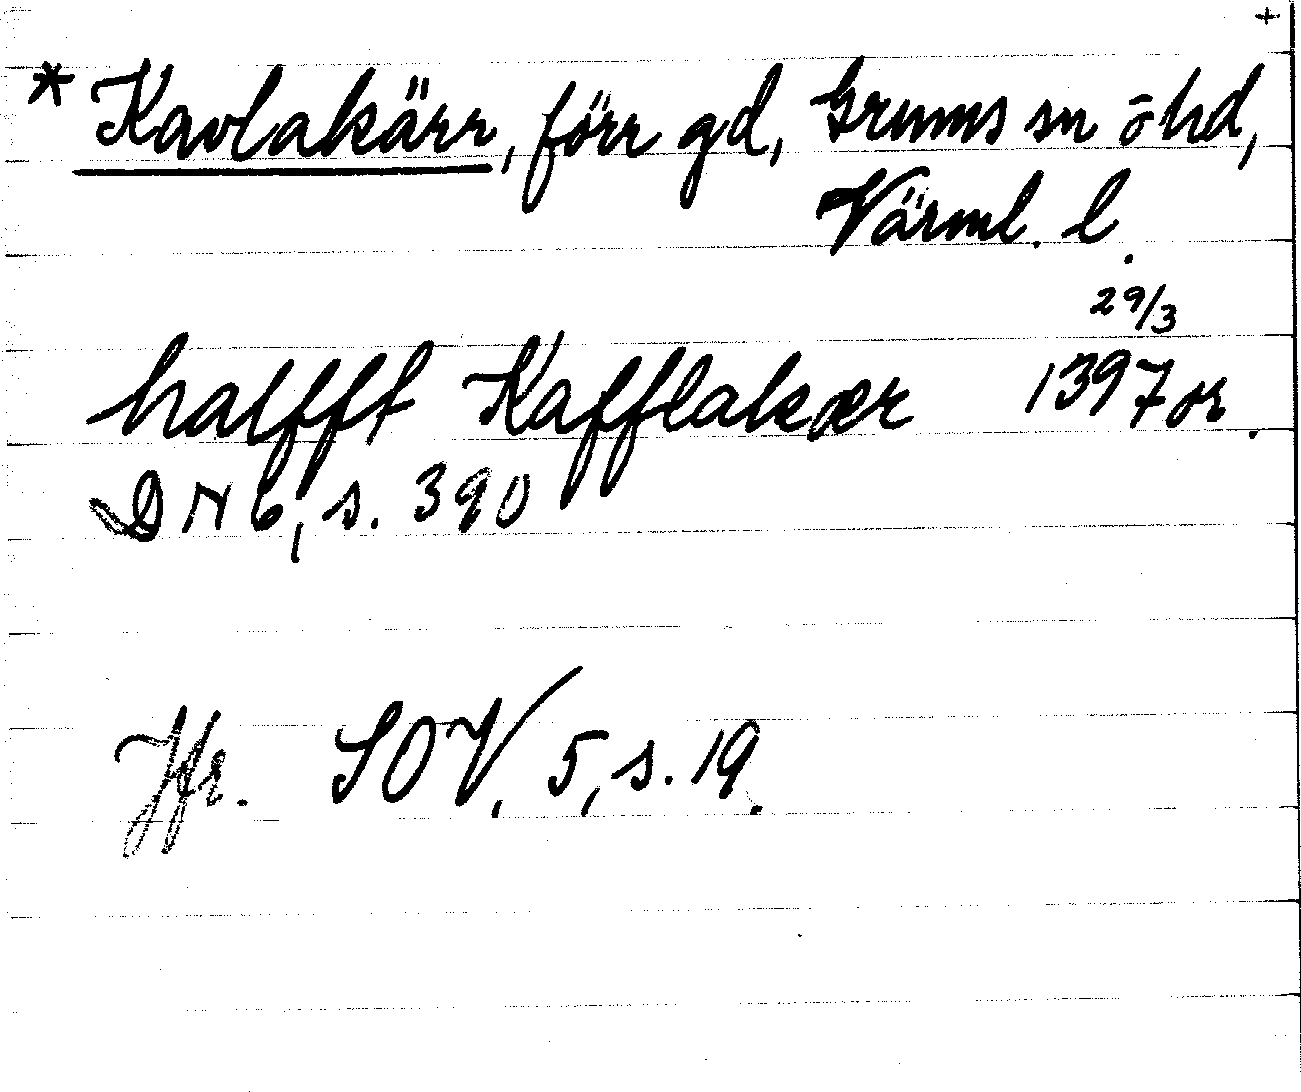 +
* Kavlakärr, förr gd, Grums sn o hd,
Värml. l.
halfft Kafflakær 29/3 1397 or.
DN 6, s. 390
Jfr. SOV, 5, s. 19.